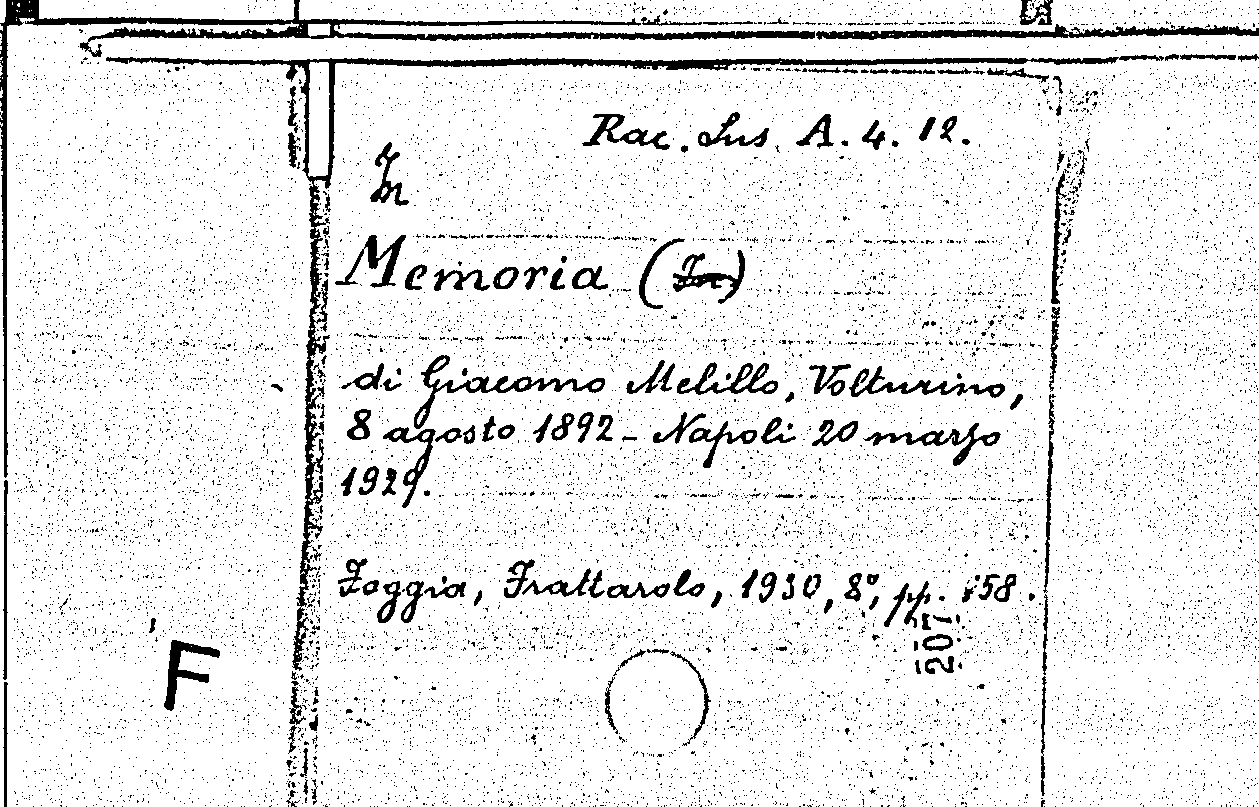 Rac. Lus A. 4. 12.
In
Memoria (In)
di Giacomo Melillo, Volturino,
8 agosto 1892 - Napoli 20 marzo
1929.
Foggia, Frattarolo, 1930, 8°, pp. 158.
207
F